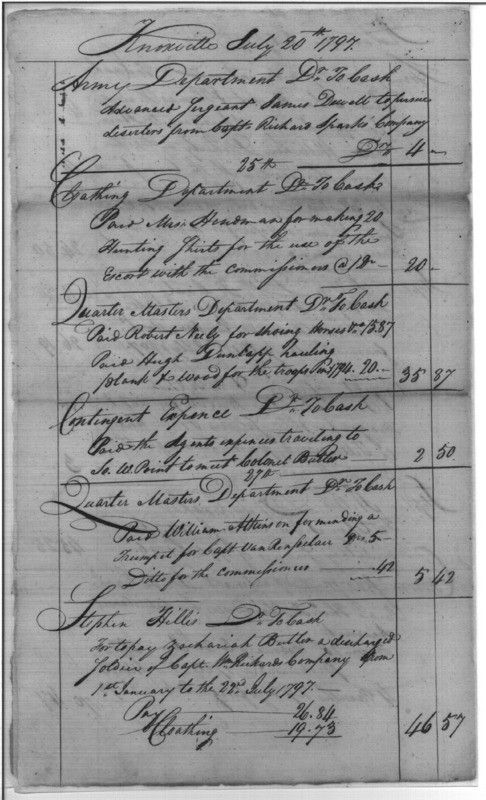 Knoxville July 20th 1797.
Army Department Dr. To Cash
Advanced Sergeant James Dewett to persue
deserters from Capt. Richard Sparks Company
Drs 4 —
25th
Cloathing Department Dr. To Cash
Paid Mrs. Hindman for making 20
Hunting Shirts for the use of the
Escort with the commissioners @ 1 Dr — 20 —
Quarter Masters Department Dr. To Cash
Paid Robert Neely for shoing horses 15.87
Paid Hugh Dunlap hauling
plank & wood for the troops 20. — 35 87
Contingent Expence Dr. To Cash
Paid the Agents expences traveling to
So. W. Point to meet Colonel Butler 2 50.
27th
Quarter Masters Department Dr. To Cash
Paid William Atkinson for mending a
Trumpet for Capt VanRensselair Drs. 5 —
Ditto for the commissioners .42 5 42
Stephen Hillis Dr. To Cash
For to pay Zachariah Butler a discharged
Soldier of Capt. Wm. Rickards Company from
1st January to the 22d July 1797. —
Pay 26.84
Cloathing 19.73 46 57